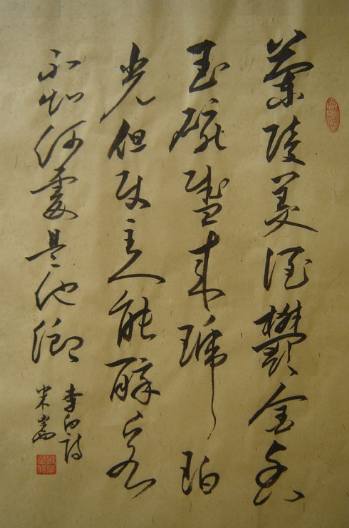 蘭陵美酒鬱金香
玉碗盛来琥珀
光但使主人能醉客
不知何處是他鄉
李白詩